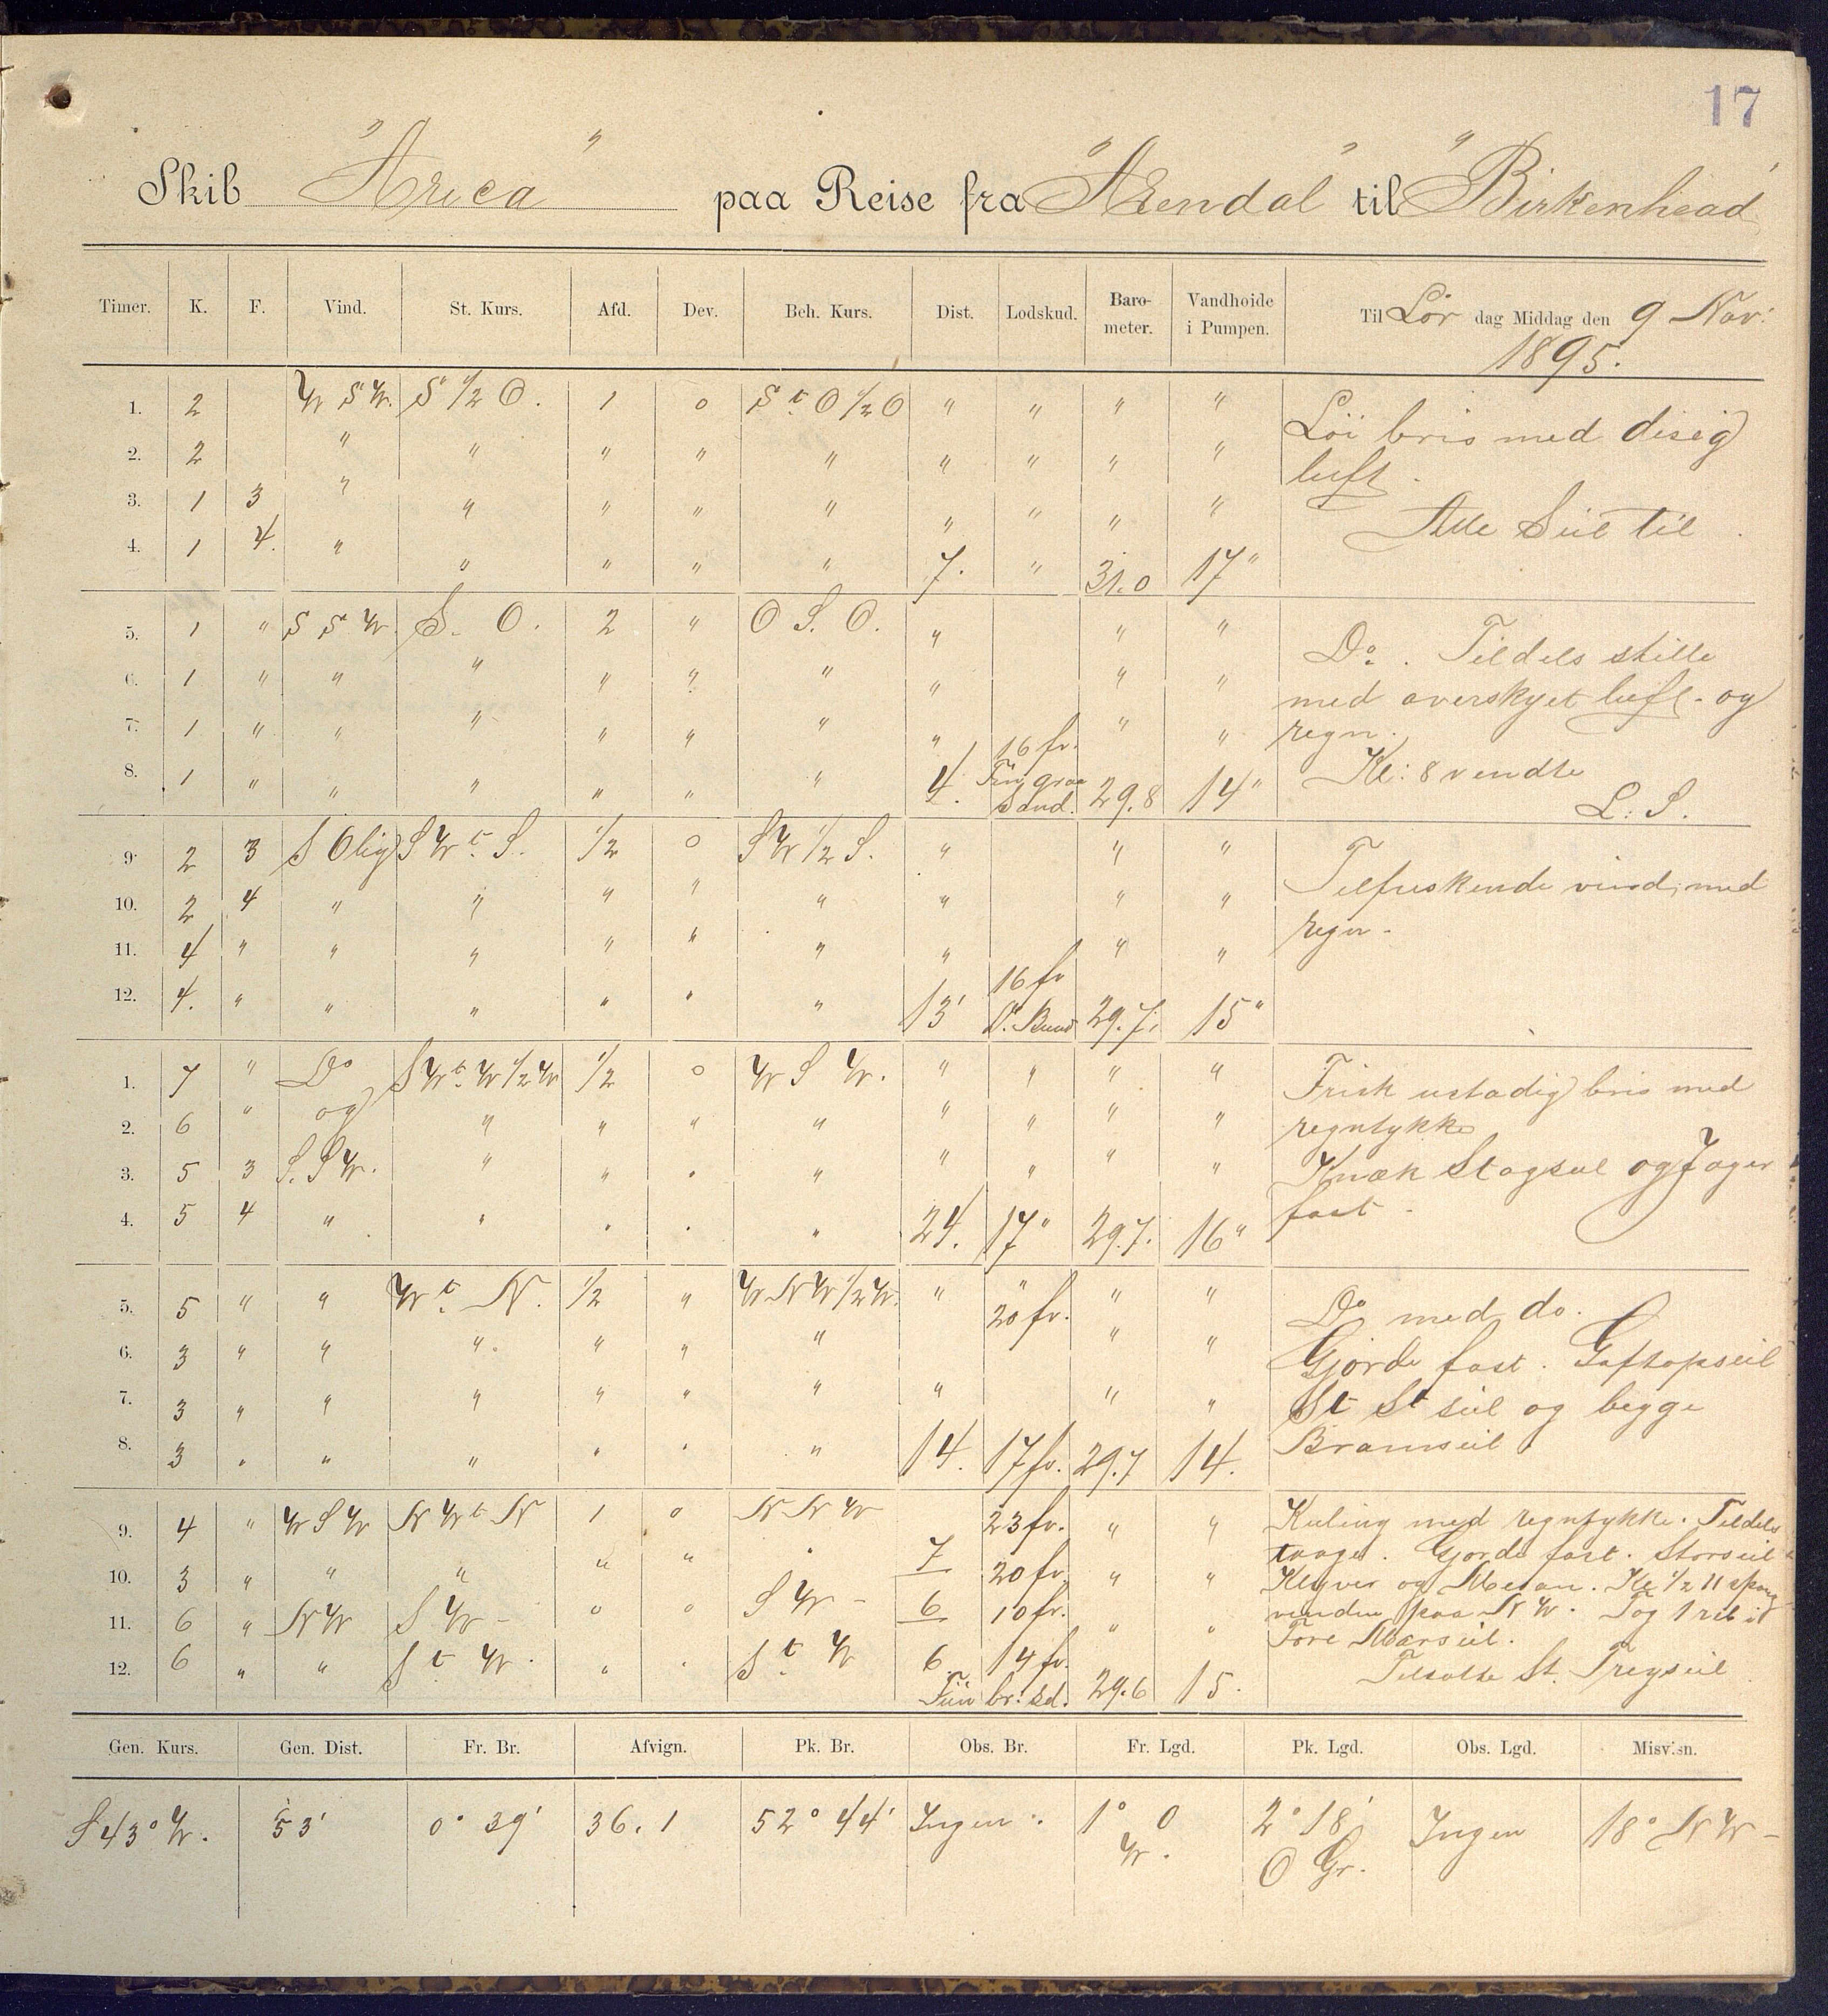 17
Skib "Arica" paa Reise fra "Arendal" til "Birkenhead"
Timer. K. F. Vind. St. Kurs. Afd. Dev. Beh. Kurs. Dist. Lodskud. Baro-meter. Vandhoide i Pumpen. Til Lør dag Middag den 9 Nov: 1895.
1. 2 W S W. S 1/2 O. 1 0 S t O 1/2 O " " " " Löi bris med disig
2. 2 " " " " " " " " " luft.
3. 1 3 " " " " " " " " " Alle Seil til.
4. 1 4. " " " " " 7. " 31.0 17"
5. 1 " S S W. S. O. 2 " O S. O. " " " Do. Tildels stille
6. 1 " " " " " " " " " med overskyet luft. og
7. 1 " " " " " " " 16 fv. " " regn.
8. 1 " " " " " " 4. Fin graa Sand. 29.8 14" Kl: 8 vendte
L: S.
9. 2 3 S Olig S W t. S. 1/2 0 S W 1/2 S. " " " Tilfriskende vind, med
10. 2 4 " " " " " " " " regn.
11. 4 " " " " " " " " "
12. 4. " " " " " " 13' 16 fv Do. Bund 29.7. 15"
1. 7 " Do S W t. W 1/2 W 1/2 0 W S W. " " " " Frisk ustadig bris med
2. 6 " og " " " " " " " " regntykke
3. 5 3 S. S W. " " " " " " " " Knæk Stagseil og Jager
4. 5 4 " " " " " 24. 17" 29.7. 16" fast.
5. 5 " " W t. N. 1/2 " W N W 1/2 W. " " 20 fv. " " Do med do.
6. 3 " " " " " " " " Gjorde fast. Gaftopseil
7. 3 " " " " " " " " " St St seil og begge
8. 3 " " " " " " 14. 17 fv. 29.7 14. Bramseil
9. 4 " W S W N W t N 1 0 N N W 23 fv. " " Kuling med regntykke. Tildels
10. 3 " " " " " " 7 20 fv. " " taage. Gjorde fast. Storseil
11. 6 " N W S W - " " S W - 6 10 fv. " " Klyver og Mesan. Kl 1/2 11 sprang
vinden paa N W. Tog 1 reb i
12. 6 " " S t W. " " S t. W 6. 14 fv. Fin br: sd. 29.6 15. Fore Mærseil.
Tilsatte St. Treyseil
Gen. Kurs. Gen. Dist. Fr. Br. Afvign. Pk. Br. Obs. Br. Fr. Lgd. Pk. Lgd. Obs. Lgd. Misvisn.
S 43° W. 53' 0° 39' 36.1 52° 44' Ingen. 1° 0 W. 2° 18' O Gr. Ingen 18° N W -